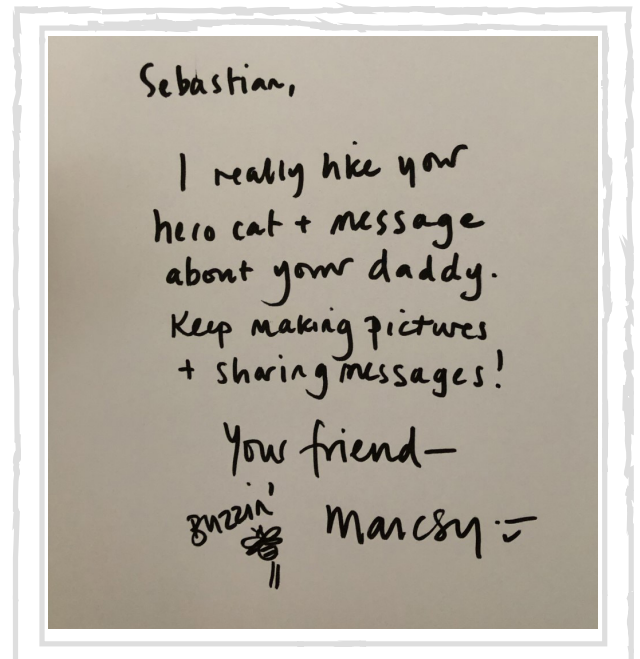 Sebastian,
I really like your
hero cat + message
about your daddy.
Keep making pictures
+ sharing messages!
Your friend—
Buzzin'
Marcsy